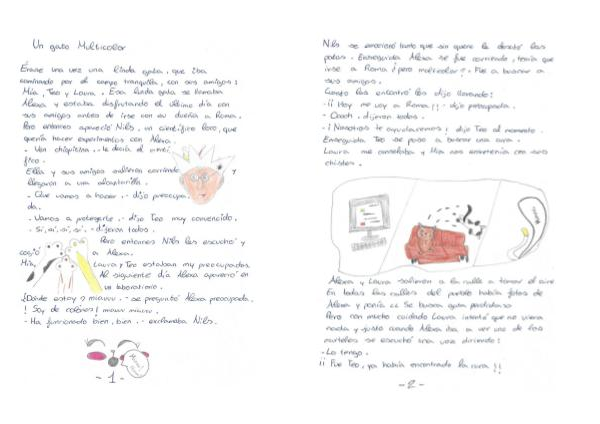 Un gato Multicolor
Érase una vez una linda gata, que iba
caminando por el campo tranquila, con sus amigos:
Mia, Teo y Laura. Esa linda gata se llamaba
Alexa y estaba disfrutando el último día con
sus amigos antes de irse con su dueña a Roma.
Pero entonces apareció Nils, un científico loco, que
quería hacer experimentos con Alexa.
- Ven chiquitina. - le decía el cientí
fico.
Ella y sus amigos salieron corriendo y
llegaron a una alcantarilla.
- Que vamos a hacer. - dijo preocupa
da.
- Vamos a protegerte. - dijo Teo muy convencido.
- Sí, sí, sí, sí. - dijeron todos.
Pero entonces Nils les escuchó y
cogió a Alexa.
Mia, Laura y Teo estaban muy preocupados.
Al siguiente día Alexa apareció en
un laboratorio.
¿Dónde estoy? miauuu. - se preguntó Alexa preocupada.
! Soy de colores! miauu miauu.
- Ha funcionado bien, bien. - exclamaba Nils.
- 1 -
Nils se emocionó tanto que sin querer le desató las
patas. Enseguida Alexa se fue corriendo, tenía que
irse a Roma ¿pero multicolor? Fue a buscar a
sus amigos.
Luego les encontró les dijo llorando:
- ¡¡ Hoy me voy a Roma!! - dijo preocupada.
- Ooooh, dijeron todos.
- ¡ Nosotros te ayudaremos! dijo Teo al momento.
Enseguida Teo se puso a buscar una cura.
Laura me consolaba y Mia nos entretenía con sus
chistes.
Alexa y Laura salieron a la calle a tomar el aire
En todas las calles del pueblo había fotos de
Alexa y ponía Se busca gata perdida
Pero con mucho cuidado Laura intentó que no viera
nada y justo cuando Alexa iba a ver uno de los
carteles se escuchó una voz diciendo:
- Lo tengo.
¡¡ Fue Teo, ya había encontrado la cura !!
- 2 -